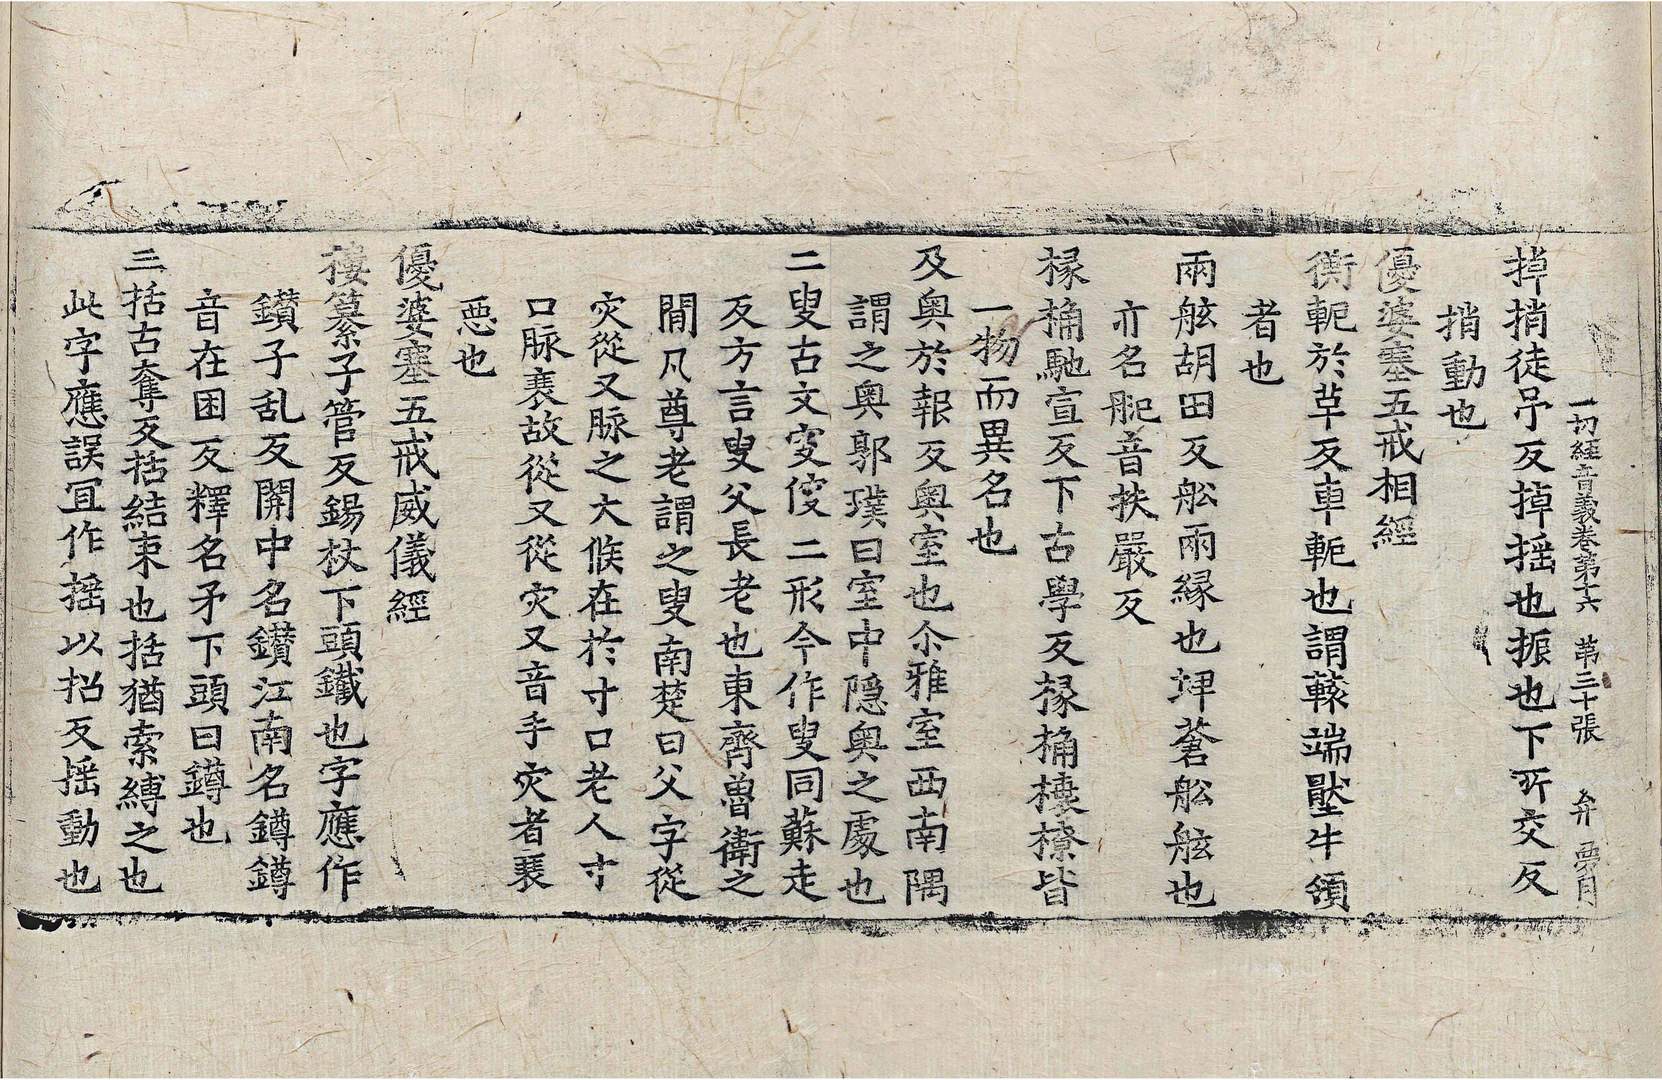 一切經音義卷第十六 第三十張 弁
掉捎徒吊反掉揺也振也下所交反
捎動也
優婆塞五戒相經
衡軛於草反車軛也謂轅端壓牛領
者也
兩舷胡田反舩兩縁也埤蒼舩舷也
亦名舥音扶嚴反
椽桷馳宣反下古學反椽桷榱橑皆
一物而異名也
及奥於報反奥室也尒雅室西南隅
謂之奥郭璞曰室中隐奥之處也
二叟古文叜傁二形今作叟同蘇走
反方言叟父長老也東齊魯衛之
間凡尊老謂之叟南楚曰父字從
灾從又脉之大候在於寸口老人寸
口脉衰故從又從灾又音手灾者衰
惡也
優婆塞五戒威儀經
摟纂子管反鍚杖下頭鐵也字應作
鑽子乱反關中名鑽江南名鐏鐏
音在困反釋名矛下頭曰鐏也
三括古奪反括結束也括猶索縛之也
此字應誤冝作揺以招反揺動也